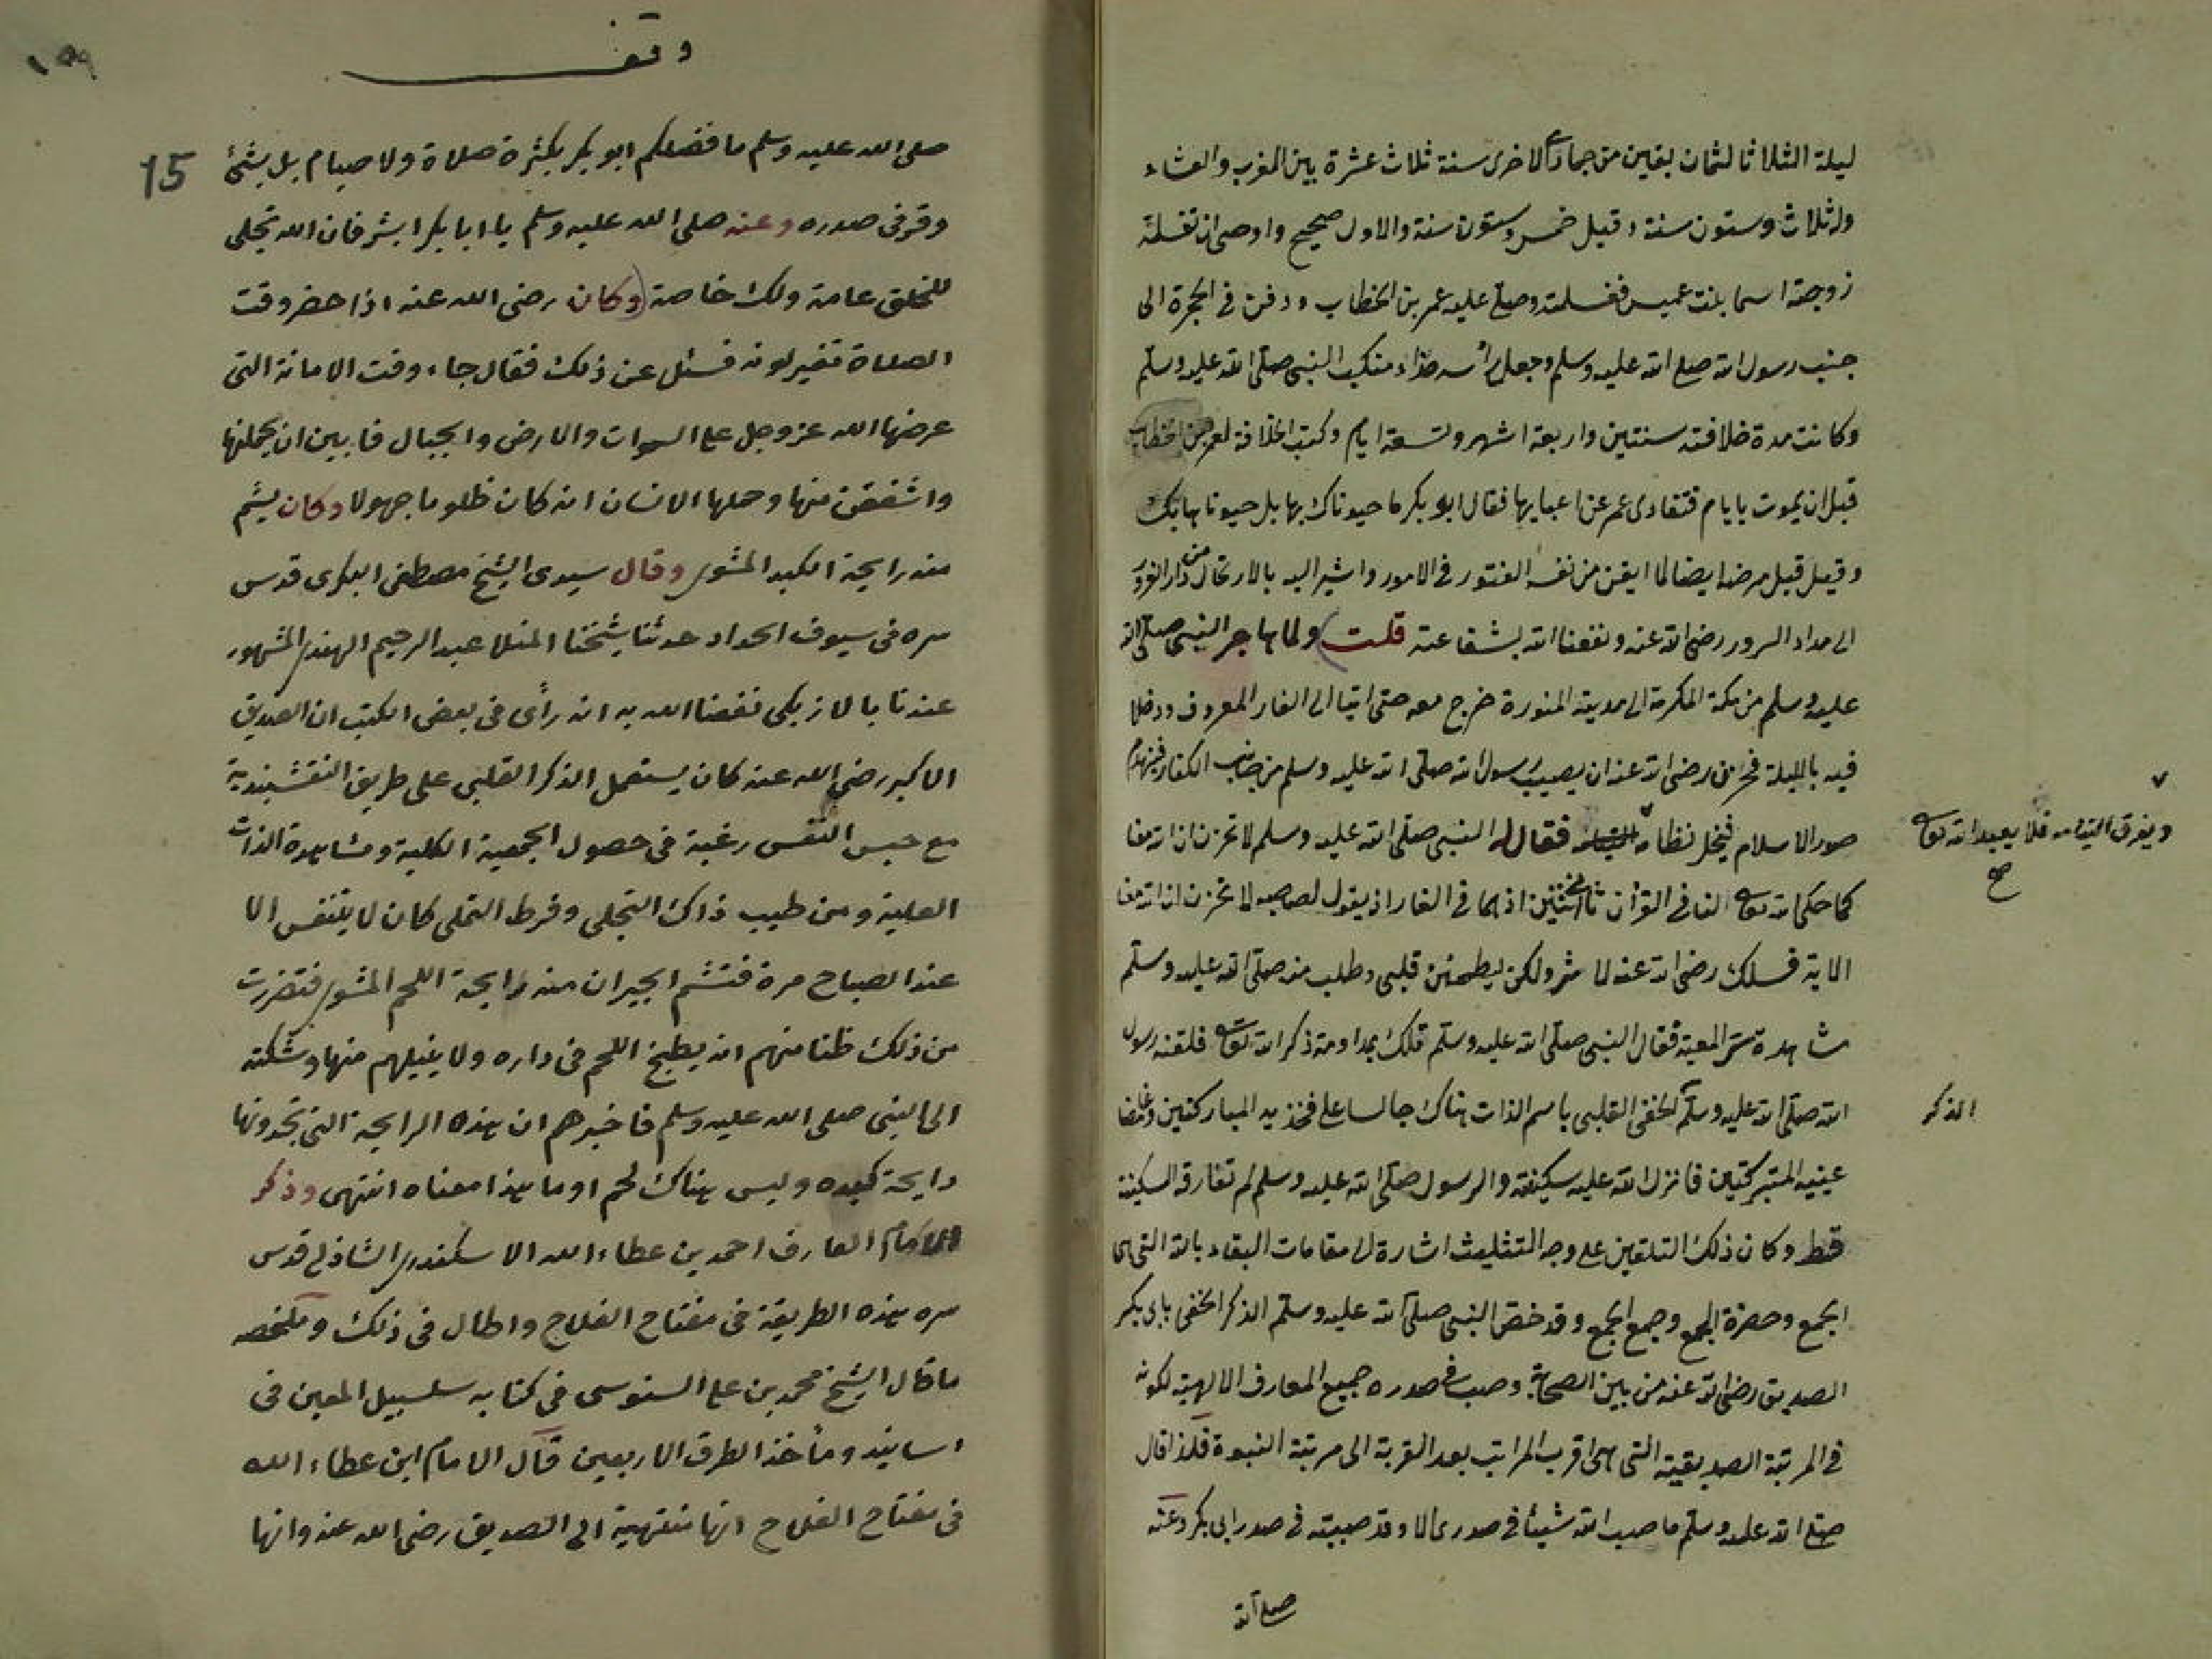 ليلة الثلاثا لثمان بقين من جمادى الاخرى سنة ثلاث عشرة بين المغرب والعشاء
وله ثلاث وستون سنة وقيل خمس وستون سنة والاول صحيح واوصى ان تغسله
زوجته اسما بنت عميس فغسلته وصلى عليه عمر بن الخطاب ودفن في الحجرة الى
جنب رسول الله صلى الله عليه وسلم وجعل رأسه حذاء منكب النبي صلى الله عليه وسلم
وكانت مدة خلافته سنتين واربعة اشهر وتسعة ايام وكتب الخلافة لعمر بن الخطاب
قبل ان يموت بايام فتفادى عمر عن اعبايها فقال ابو بكر ما حبوناك بها بل حبوناها بك
وقيل قبل مرضه ايضا لما ايقن من نفسه الفتور في الامور واشير اليه بالارتحال من دار الغرور
الى مداد السرور رضى الله عنه ونفعنا الله بشفاعته قلت ولما هاجر النبي صلى الله
عليه وسلم من مكة المكرمة الى مدينة المنورة خرج معه حتى اتيا الى الغار المعروف ودخلا
فيه بالليلة فحزن رضى الله عنه ان يصيب رسول الله صلى الله عليه وسلم من جانب الكفار فينهدم
صور الاسلام فيخل نظامه فقال له النبي صلى الله عليه وسلم لا تحزن ان الله معنا
ويفرق التيامه فلا يعبد الله تعالى
صح
كما حكى الله تعالى لنا في القرأن ثاني اثنين اذ هما في الغار اذ يقول لصاحبه لا تحزن ان الله معنا
الاية فسلك رضى الله عنه لما ثم ولكن ليطمئن قلبي وطلب منه صلى الله عليه وسلم
شاهدة سر المعية فقال النبي صلى الله عليه وسلم تلك بمداومة ذكر الله تعالى فلقنه رسول
الله صلى الله عليه وسلم الخفى القلبي باسم الذات هناك جالسا على فخذيه المباركتين وغامضا
الذكر
عينيه المتبركتين فانزل الله عليه سكينته والرسول صلى الله عليه وسلم لم تفارقه السكينة
قط وكان ذلك التلقين على وجه التثليث اشارة الى مقامات البقاء بالله التي هى
الجمع وحضرة الجمع وجمع الجمع وقد خص النبي صلى الله عليه وسلم الذكر الخفى بابى بكر
الصديق رضى الله عنه من بين الصحابة وصب في صدره جميع المعارف الالهية لكونه
في المرتبة الصديقية التى هى اقرب المراتب بعد القربة الى مرتبة النبوة فلذا قال
صلى الله عليه وسلم ما صب الله شيئا في صدرى الا وقد صببته في صدر ابى بكر وعنه
صلى الله
وقف
١٥٩
15
صلى الله عليه وسلم ما فضلكم ابو بكر بكثرة صلاة ولا صيام بل بشئ
وقر في صدره وعنه صلى الله عليه وسلم يا ابا بكر ابشر فان الله تجلى
للخلق عامة ولك خاصة وكان رضى الله عنه اذا حضر وقت
الصلاة تغير لونه فسئل عن ذلك فقال جاء وقت الامانة التى
عرضها الله عز وجل على السموات والارض والجبال فابين ان يحملنها
واشفقن منها وحملها الانسان انه كان ظلوما جهولا وكان يشم
منه رايحة الكبد المشوي وقال سيدى الشيخ مصطفى البكرى قدس
سره في سيوف الحداد حدثنا شيخنا المنلا عبد الرحيم الهندي المشهور
عندنا بالازبكى نفعنا الله به انه رأى في بعض الكتب ان الصديق
الاكبر رضى الله عنه كان يستعمل الذكر القلبي على طريق النقشبندية
مع حبس النفس رغبة في حصول الجمعية الكلية ومشاهدة الذات
العلية ومن طيب ذاك التجلى وفرط التحلى كان لا يتنفس الا
عند الصباح مرة فتشم الجيران منه رايحة اللحم المشوي فتضررت
من ذلك ظنا منهم انه يطبخ اللحم في داره ولا ينيلهم منها وشكته
الى النبي صلى الله عليه وسلم فاخبرهم ان هذه الرايحة التى تجدونها
رايحة كبده وليس هناك لحم او ما هذا معناه انتهى وذكر
الامام العارف احمد بن عطاء الله الاسكندري الشاذلى قدس
سره هذه الطريقة في مفتاح الفلاح واطال في ذلك وملخصه
ما قال الشيخ محمد بن على السنوسى في كتابه سلسبيل المعين في
اسانيد ومأخذ الطرق الاربعين قال الامام ابن عطاء الله
في مفتاح الفلاح انها منتهية الى الصديق رضى الله عنه وانها